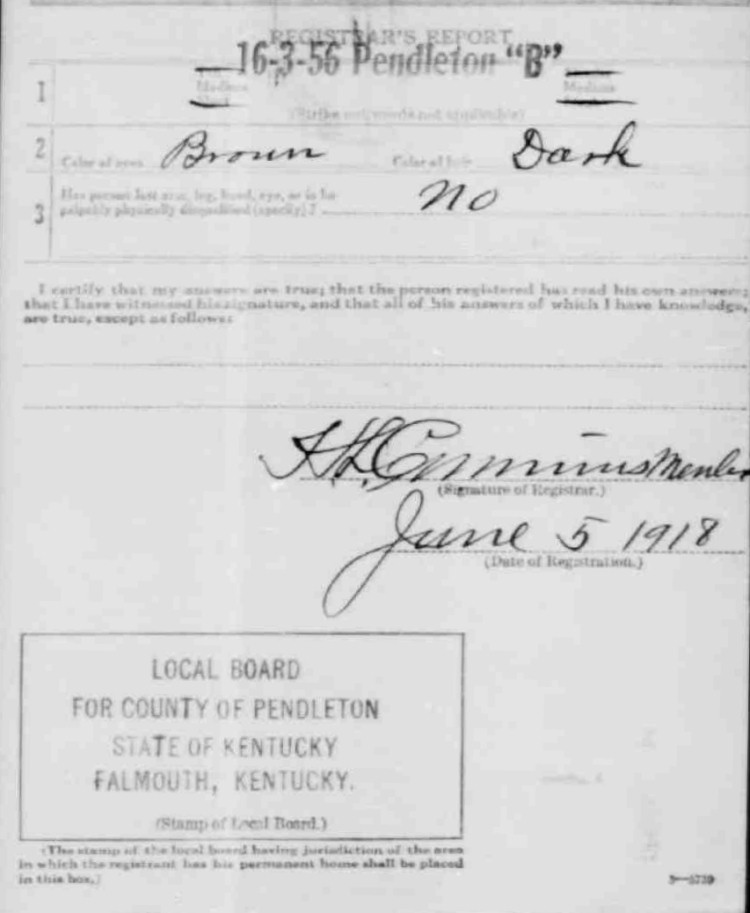 REGISTRAR'S REPORT
16-3-56 Pendleton "B"
1 Medium Medium
(Strike out words not applicable)
2 Color of eyes Brown Color of hair Dark
3 Has person lost arm, leg, hand, eye, or is he
palpably physically disqualified (specify)? no
I certify that my answers are true; that the person registered has read his own answers;
that I have witnessed his signature, and that all of his answers of which I have knowledge,
are true, except as follows:
Member
(Signature of Registrar.)
June 5 1918
(Date of Registration.)
LOCAL BOARD
FOR COUNTY OF PENDLETON
STATE OF KENTUCKY
FALMOUTH, KENTUCKY.
(Stamp of Local Board.)
(The stamp of the local board having jurisdiction of the area
in which the registrant has his permanent home shall be placed
in this box.)